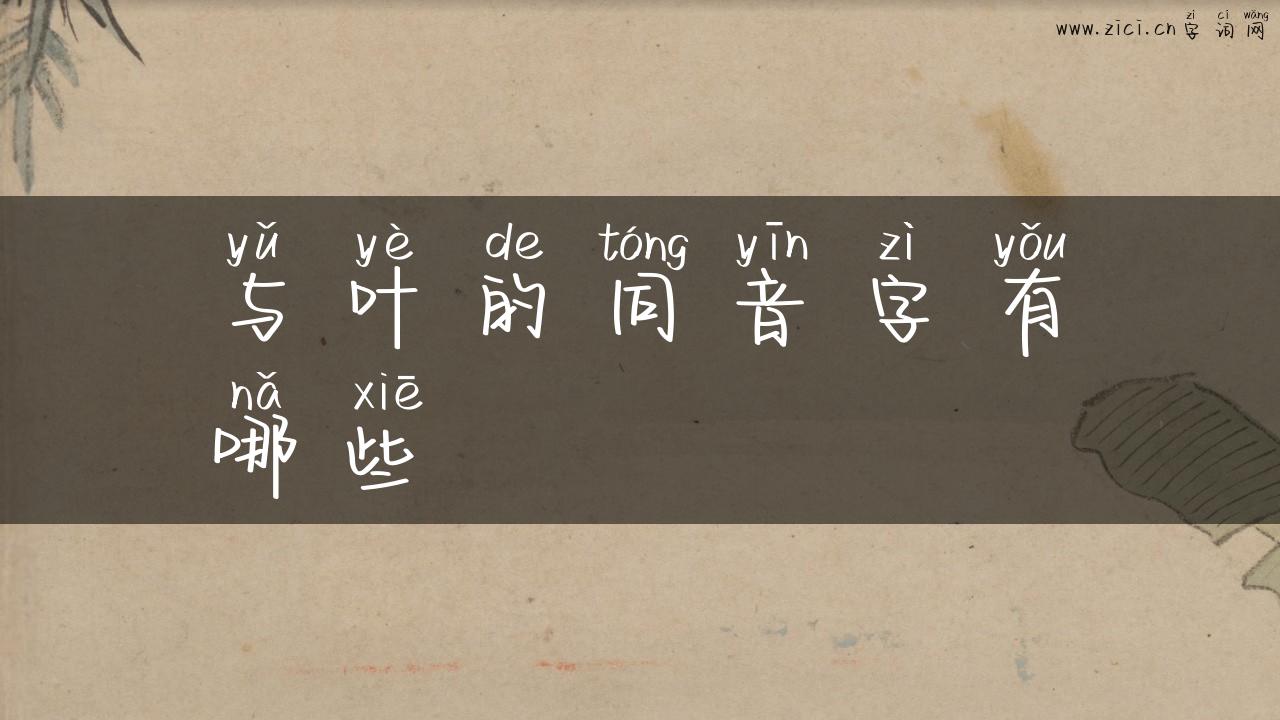 zì cí wǎng
www.zici.cn 字词网
yǔ yè de tóng yīn zì yǒu
与叶的同音字有
nǎ xiē
哪些